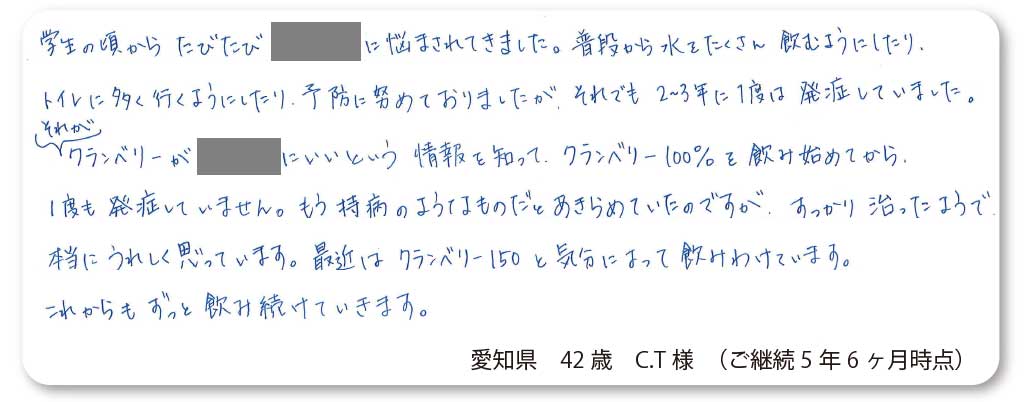 学生の頃から たびたび に悩まされてきました。普段から水をたくさん 飲むようにしたり、
トイレに多く行くようにしたり、予防に努めておりましたが、それでも 2~3年に1度は 発症していました。
それが
クランベリーが にいいという 情報を知って、クランベリー100%を飲み始めてから、
1度も 発症していません。もう 持病のようなものだとあきらめていたのですが、すっかり 治ったようで、
本当にうれしく思っています。最近は クランベリー150 と気分によって飲みわけています。
これからも ずっと飲み続けていきます。
愛知県 42歳 C.T様 (ご継続5年6ヶ月時点)